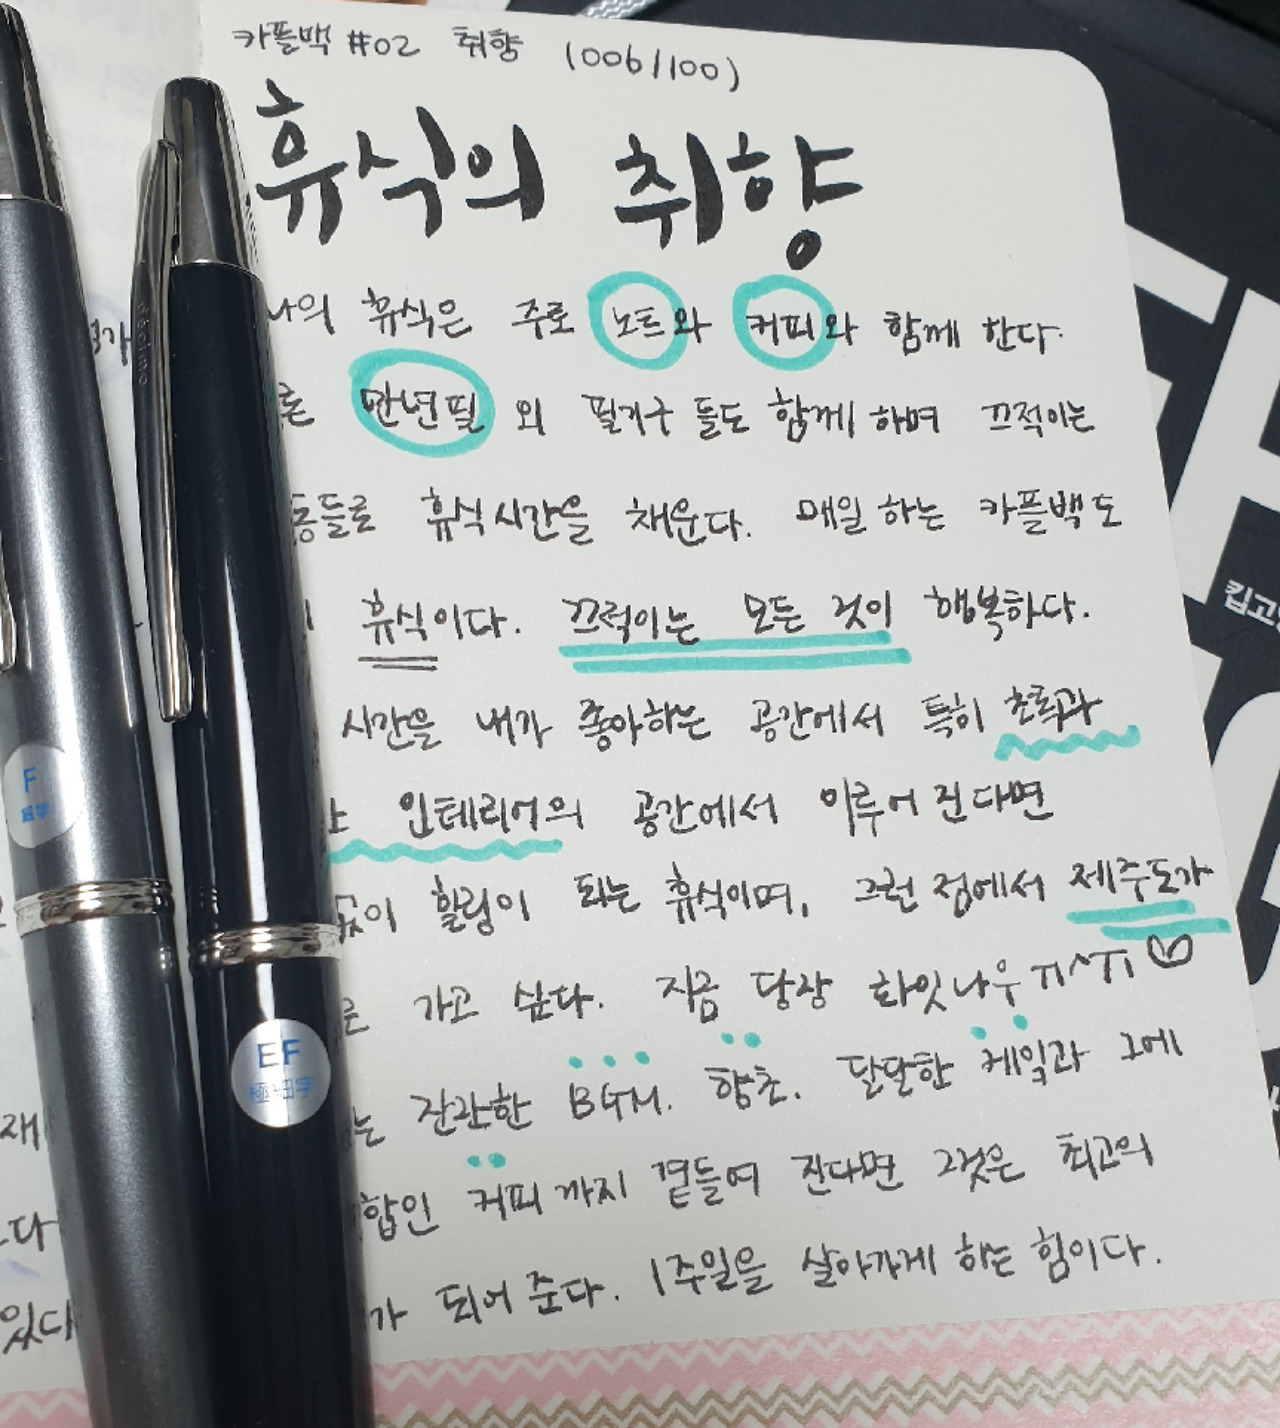 카플백 #02 취향 (006/100)
휴식의 취향
나의 휴식은 주로 노트와 커피와 함께 한다.
론 만년필 외 필기구 들도 함께 하며 끄적이는
동들로 휴식시간을 채운다. 매일 하는 카플백도
휴식이다. 끄적이는 모든 것이 행복하다.
시간을 내가 좋아하는 공간에서 특히 초록과
인테리어의 공간에서 이루어 진다면
없이 힐링이 되는 휴식이며, 그런 점에서 제주도가
가고 싶다. 지금 당장 롸잇나우 ㅠ^ㅠ ♡
는 잔잔한 BGM. 향초. 달달한 케잌과 그에
합인 커피까지 곁들여 진다면 그것은 최고의
가 되어 준다. 1주일을 살아가게 하는 힘이다.
F
細字
EF
極細字
킵고
재
다
있다